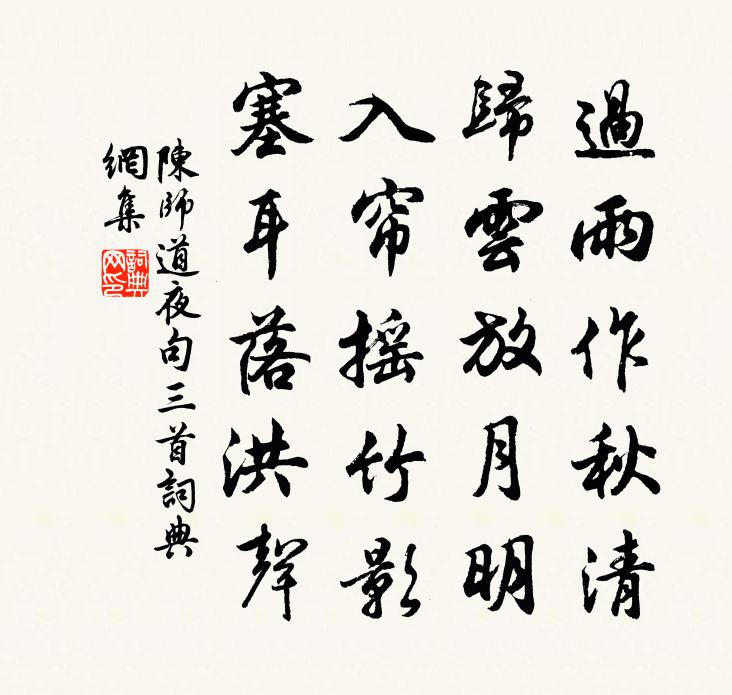 過雨作秋清
歸雲放月明
入帘摇竹影
塞耳落洪聲
陳師道夜句三首詞典
網集
詞典
网印